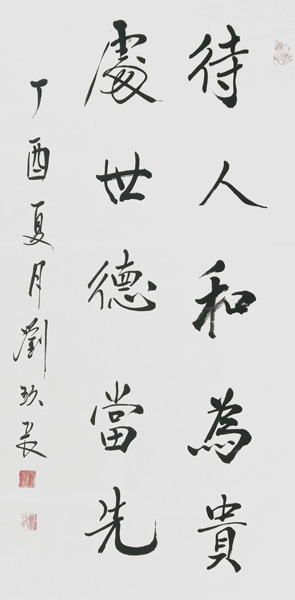 待人和為貴
處世德當先
丁酉夏月劉